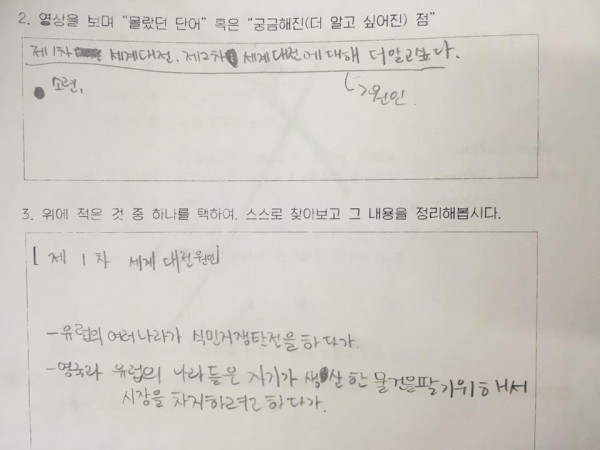 2. 영상을 보며 "몰랐던 단어" 혹은 "궁금해진(더 알고 싶어진) 점"
제1차 세계대전. 제2차 세계대전에대해 더알고싶다.
소련,
↳원인.
3. 위에 적은 것 중 하나를 택하여, 스스로 찾아보고 그 내용을 정리해봅시다.
[제 1 차 세계대전원인]
-유럽의여러나라가 식민지쟁탄전을하다가.
-영국과 유럽의 나라들은 자기가 생산한 물건을팔기위해서
시장을 차지하려고 하다가.